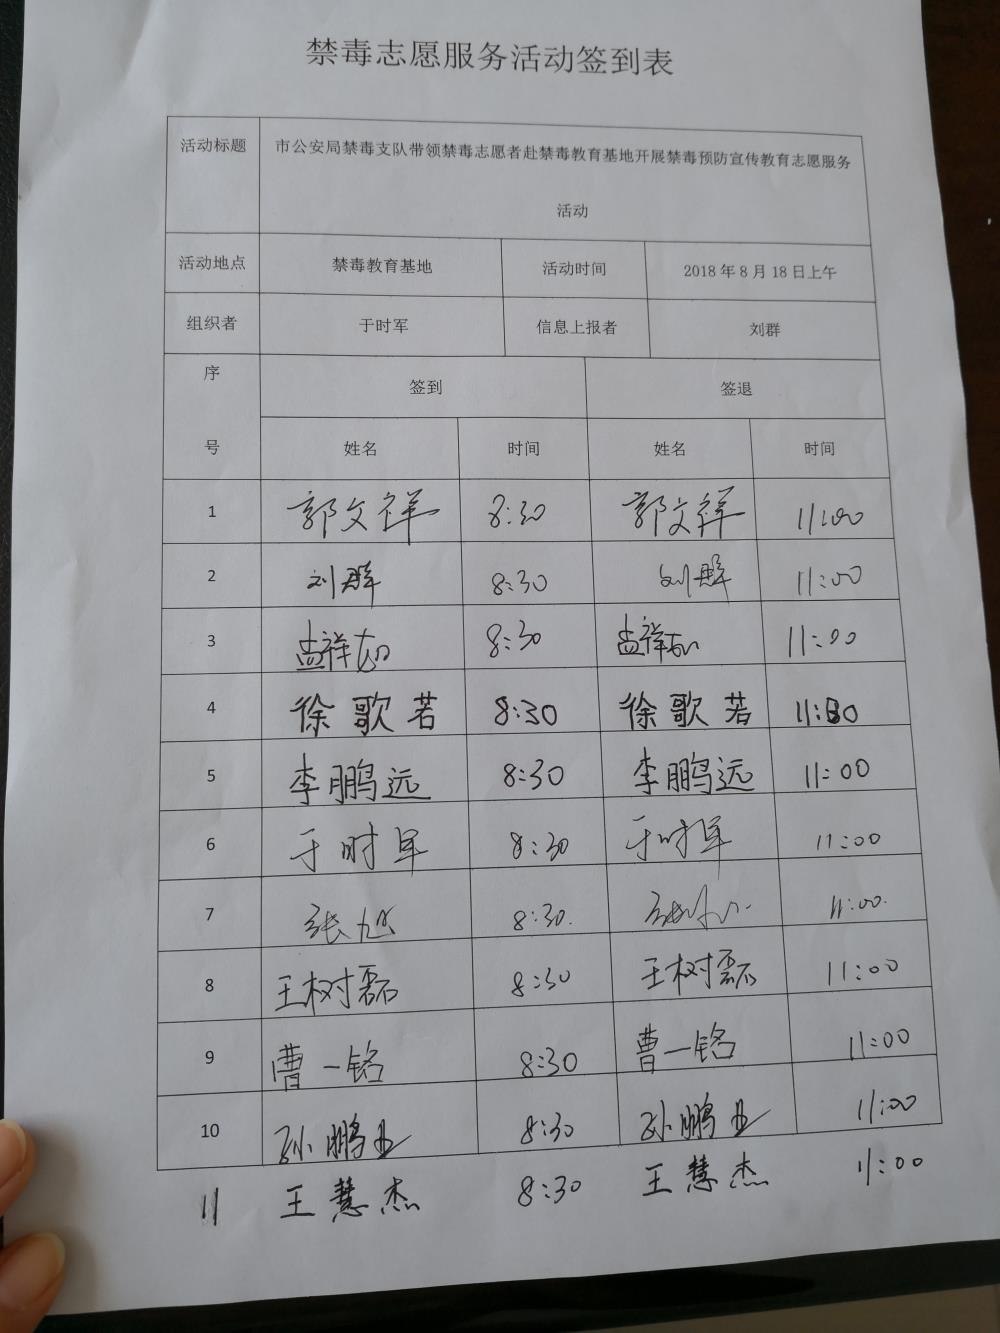 禁毒志愿服务活动签到表
活动标题 市公安局禁毒支队带领禁毒志愿者赴禁毒教育基地开展禁毒预防宣传教育志愿服务
活动
活动地点 禁毒教育基地 活动时间 2018年8月18日上午
组织者 于时军 信息上报者 刘群
序 签到 签退
号 姓名 时间 姓名 时间
1 郭文祥 8:30 郭文祥 11:00
2 刘群 8:30 刘群 11:00
3 孟祥 8:30 孟祥 11:00
4 徐歌若 8:30 徐歌若
5 李鹏远 8:30 李鹏远 11:00
6 于时军 8:30 于时军 11:00
7 张旭 8:30. 张旭 11:00.
8 王树磊 8:30 王树磊 11:00
9 曹一铭 8:30 曹一铭 11:00
10 孙鹏 8:30 孙鹏 11:00
11 王慧杰 8:30 王慧杰 11:00